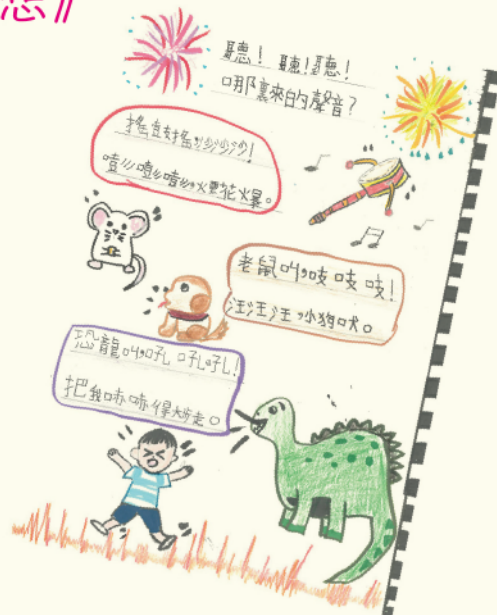 聽！聽！聽！
哪裏來的聲音？
搖鼓搖沙沙沙！
嘻嘻嘻煙花爆。
老鼠叫吱吱吱！
汪汪汪小狗吠。
恐龍叫吼吼吼！
把我嚇得大步走。